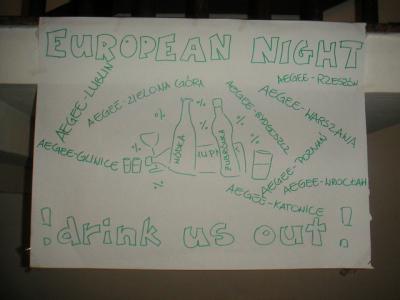 EUROPEAN NIGHT
AEGEE-LUBLIN
AEGEE-ZIELONA GÓRA
AEGEE-RZESZÓW
AEGEE-WARSZAWA
AEGEE-BYDGOSZCZ
AEGEE-POZNAŃ
AEGEE-GLIWICE
% % % % % %
WÓDKA
ŻUBRÓWKA
AEGEE-WROCŁAW
AEGEE-KATOWICE
!drink us out!